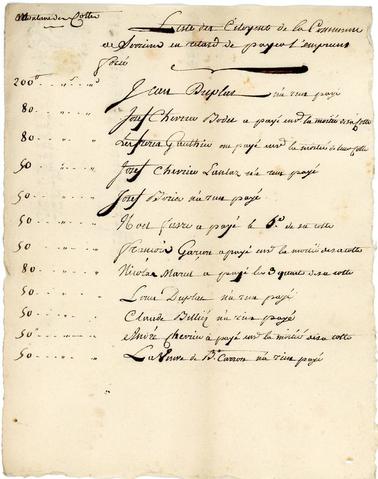 Montant des Cottes
Liste des Citoyens de la Commune
de en retard de payer l'emprunt
forcé
200# Jean Duplus n'a rien payé
80 Josef Chevrier Bodet a payé sur la moitié de sa Cotte
80 Les freres Gauthier ont payé sur la moitié de leur Cotte
50 Josef Chevrier n'a rien payé
50 Josef n'a rien payé
50 Noel Favre a payé le de sa cotte
50 François a payé sur la moitié de sa cotte
80 Nicolas a payé les 3 quarts de sa cotte
50 Louis Duplus n'a rien payé
50 Claude n'a rien payé
50 André Chevrier a payé sur la moitié de sa cotte
50 La Veuve de n'a rien payé